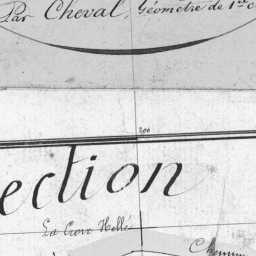 Par Cheval, Géometre de 1re c
200
ection
La Croix Hellé
Chemin